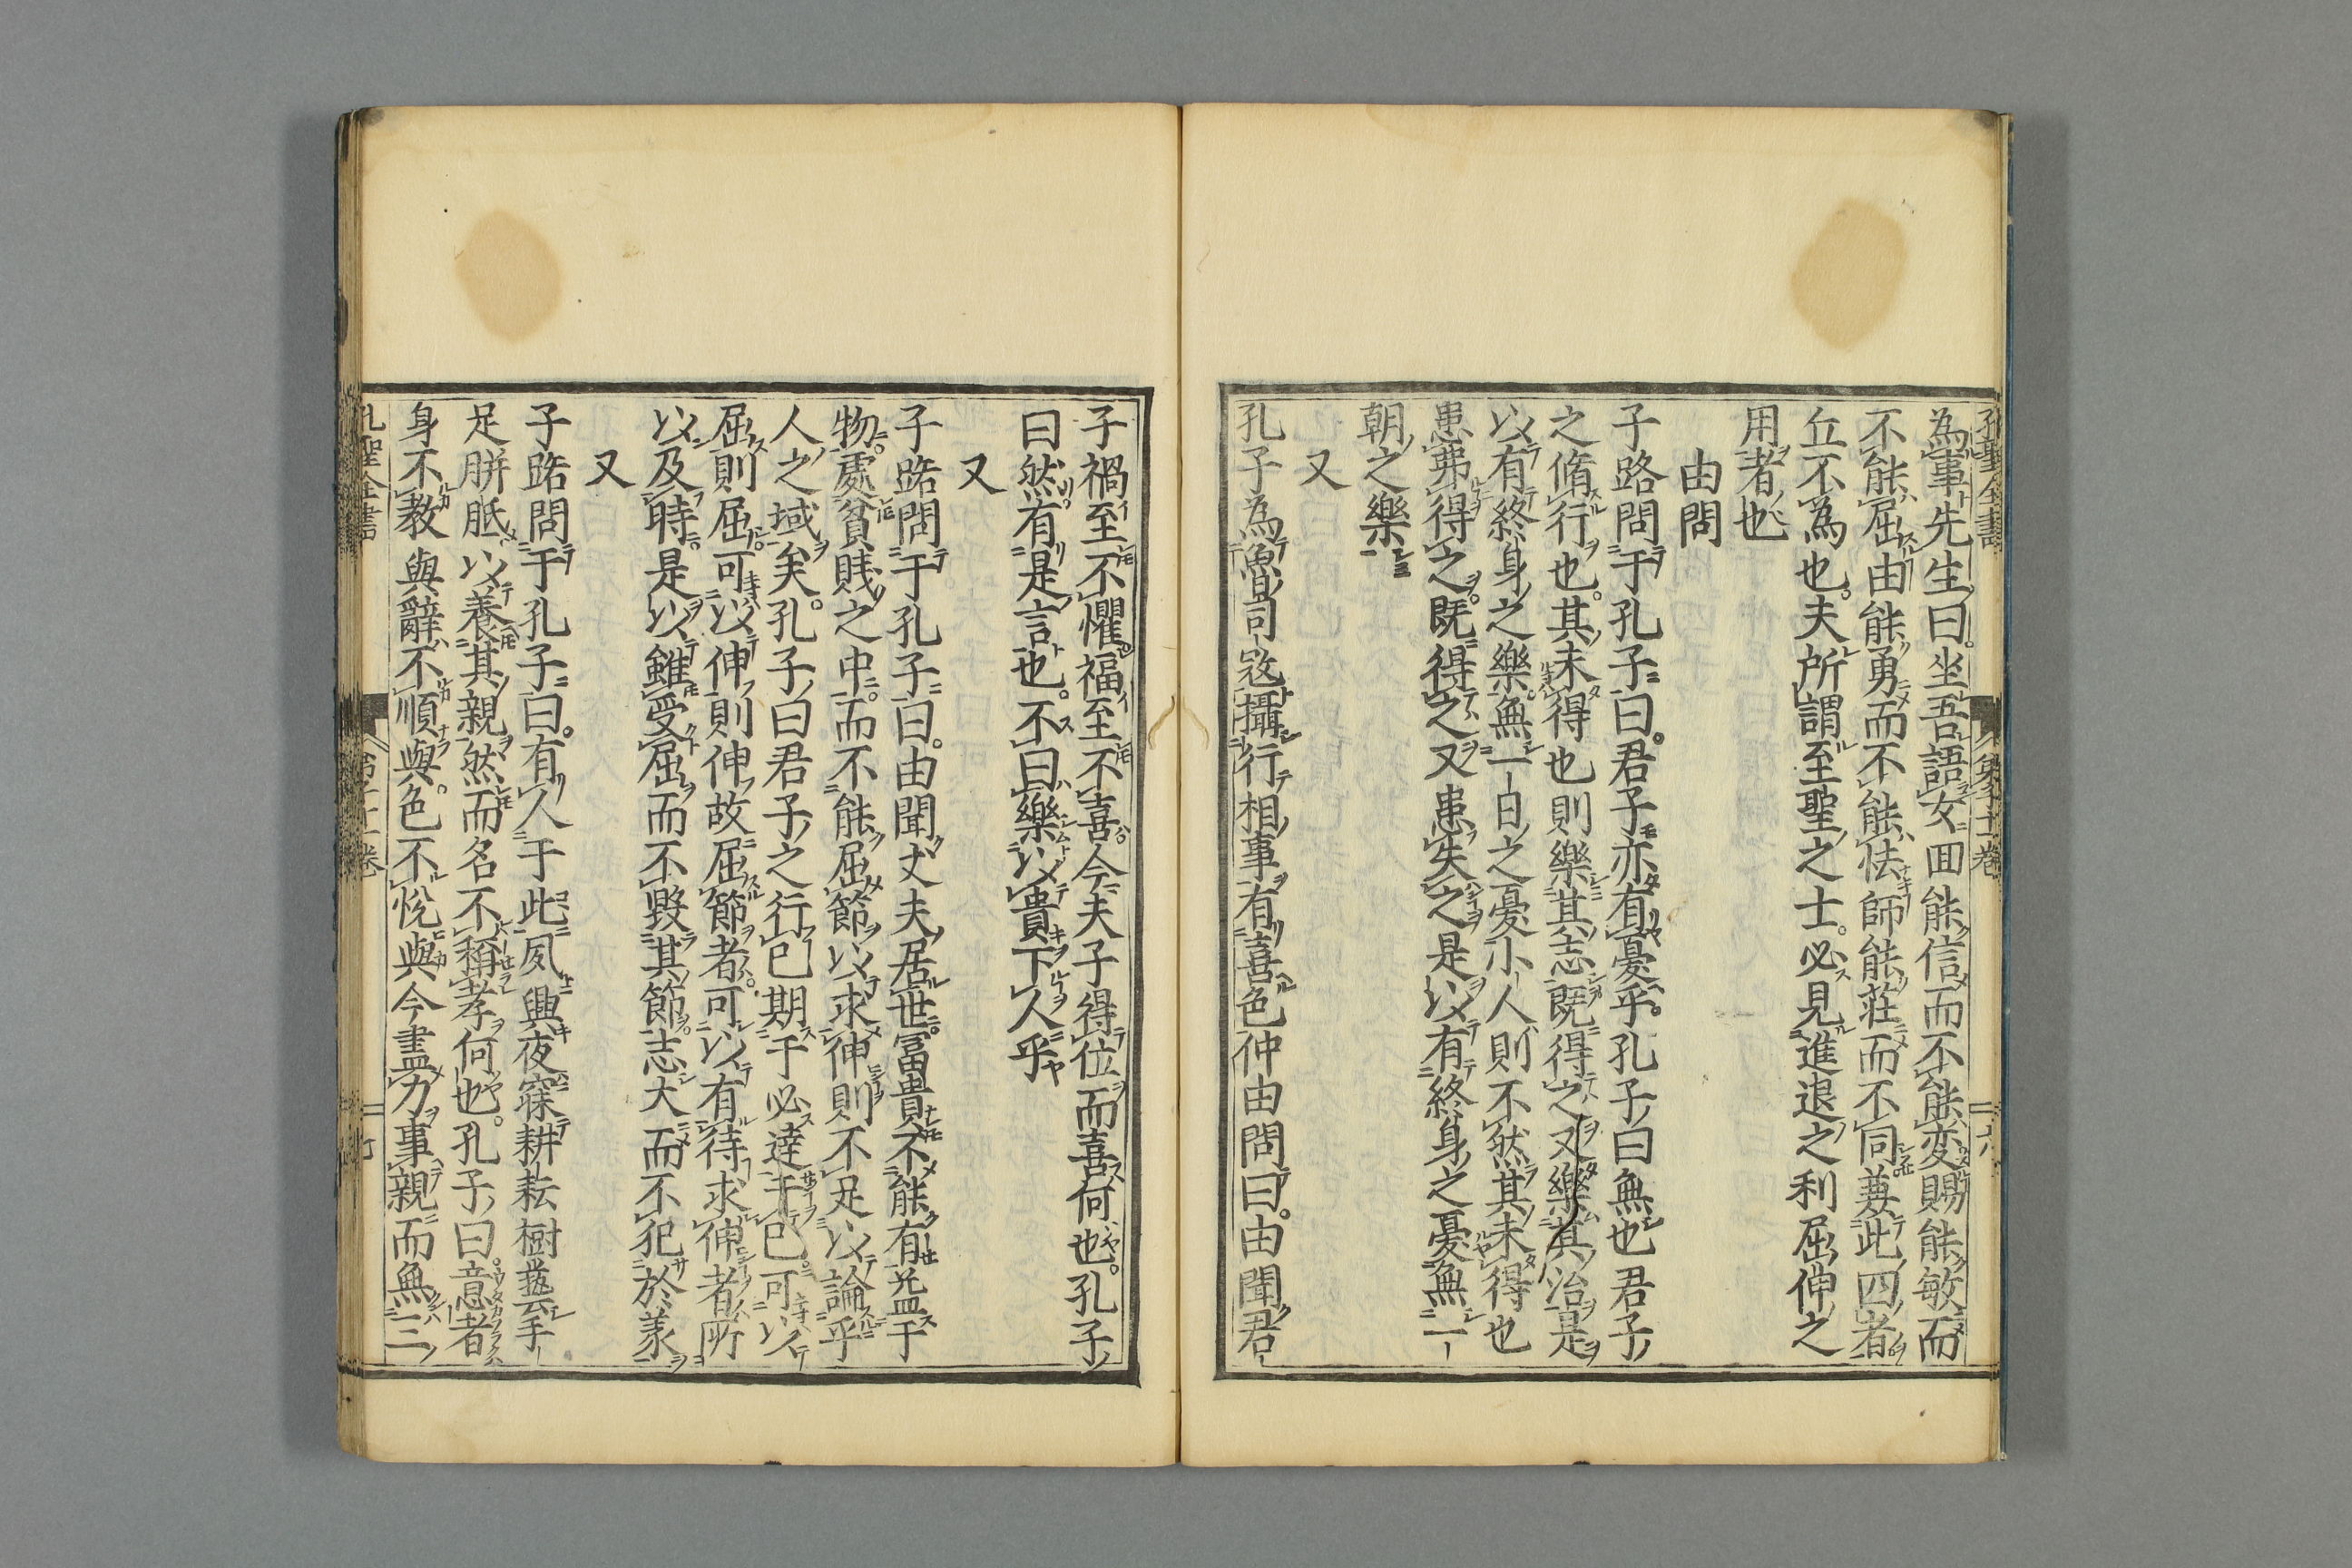 孔聖全書 第十一卷 六
為事先生曰。坐吾語女回能信而不能変賜能敏而
不能屈由能勇而不能怯師能莊而不同兼此四者
丘不為也。夫所謂至聖之士。必見進退之利屈伸之
用者也
由問
子路問于孔子曰。君子亦有憂乎。孔子曰無也君子
之脩行也。其未得也則樂其志既得之又樂其治是
以有終身之樂。無一日之憂小人則不然其未得也
患弗得之。既得之又患失之是以有終身之憂無一
朝之樂
又
孔子為魯司寇攝行相事有喜色仲由問曰。由聞君
子禍至不懼福至不喜。今夫子得位而喜何也。孔子
曰然。有是言也。不曰樂以貴下人乎
又
子路問于孔子曰。由聞丈夫居世。冨貴不能有益于
物。處貧賤之中。而不能屈節以求伸則不足以論乎
人之域矣。孔子曰君子之行已期于必達于已。可以
屈則屈。可以伸則伸故屈節者。可以有待求伸者所
以及時。是以雖受屈而不毀其節。志大而不犯於義
又
子路問于孔子曰。有人于此夙興夜寐耕耘樹藝手
足胼胝以養其親然而名不稱孝何也。孔子曰。意者
身不敎與辭不順與。色不悅與今盡力事親而無三
孔聖全書 第十一卷